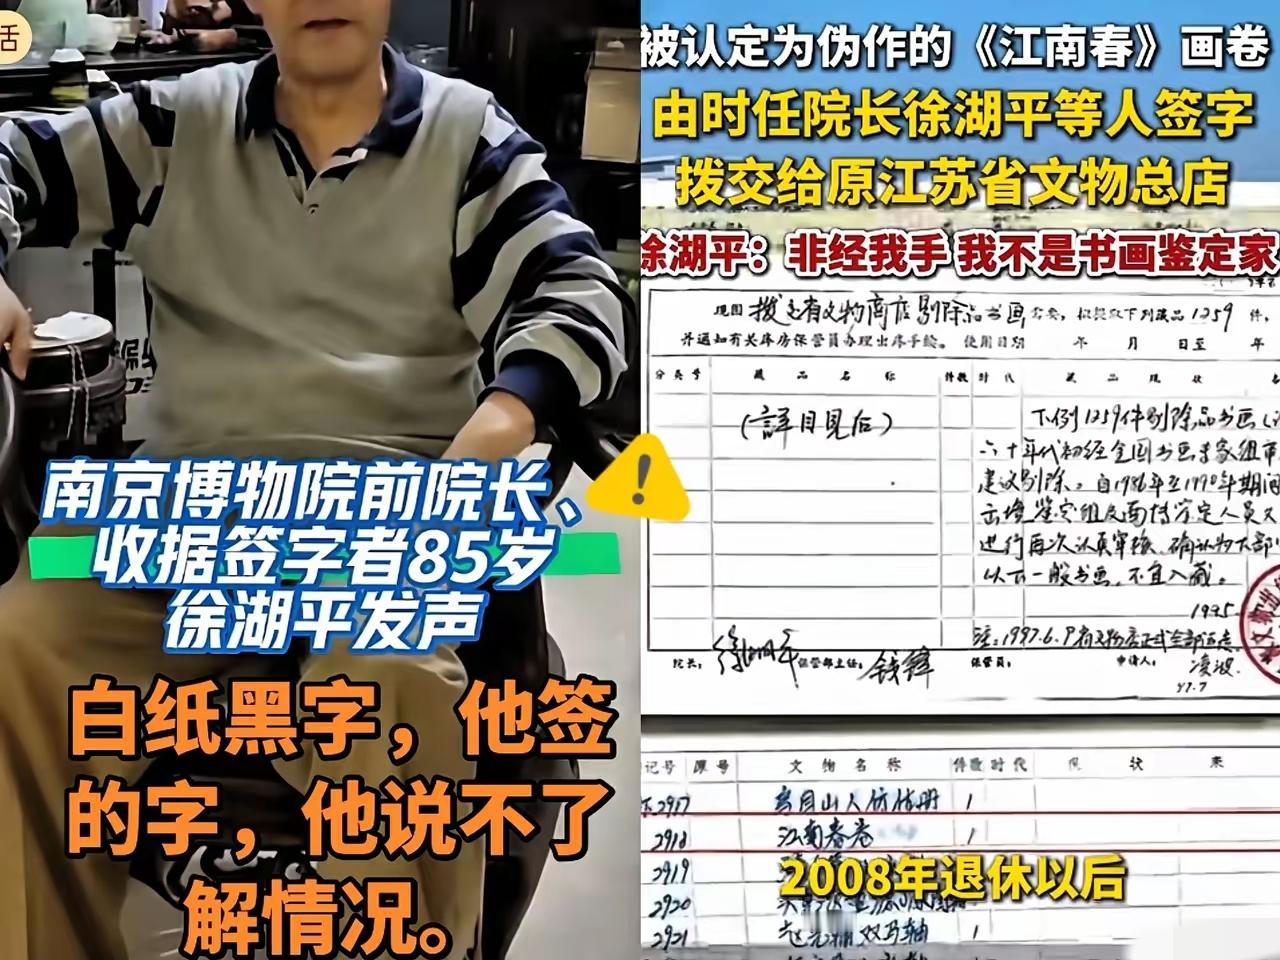 活
南京博物院前院长、
收据签字者85岁
徐湖平发声
白纸黑字，他签
的字，他说不了
解情况。
被认定为伪作的《江南春》画卷
由时任院长徐湖平等人签字
拨交给原江苏省文物总店
徐湖平：非经我手 我不是书画鉴定家
现因拨交有文物商店剔除品书画需要，拟提取下列藏品1259件，
并通知有关库房保管员办理出库手续。 使用日期 年 月 日至 年
分类号 藏品名称 件数 时代 藏品现状
(詳目見后) 下列1259件剔除品书画
六十年代初经全国书画专家组审
建议剔除。自1986年至1990年期间
进行再次认真审核，确认为大部
以下一般书画，不宜入藏。
1995.
注：1997.6.9
院长： 徐湖平 保管部主任： 钱锋 保管员： 申请人： 凌波
97.7
记号 原号 文物名称 件数 时代 现状 来
2917 1
2918 江南春卷 1
2919
2008年退休以后
2920
2921 双马轴 1